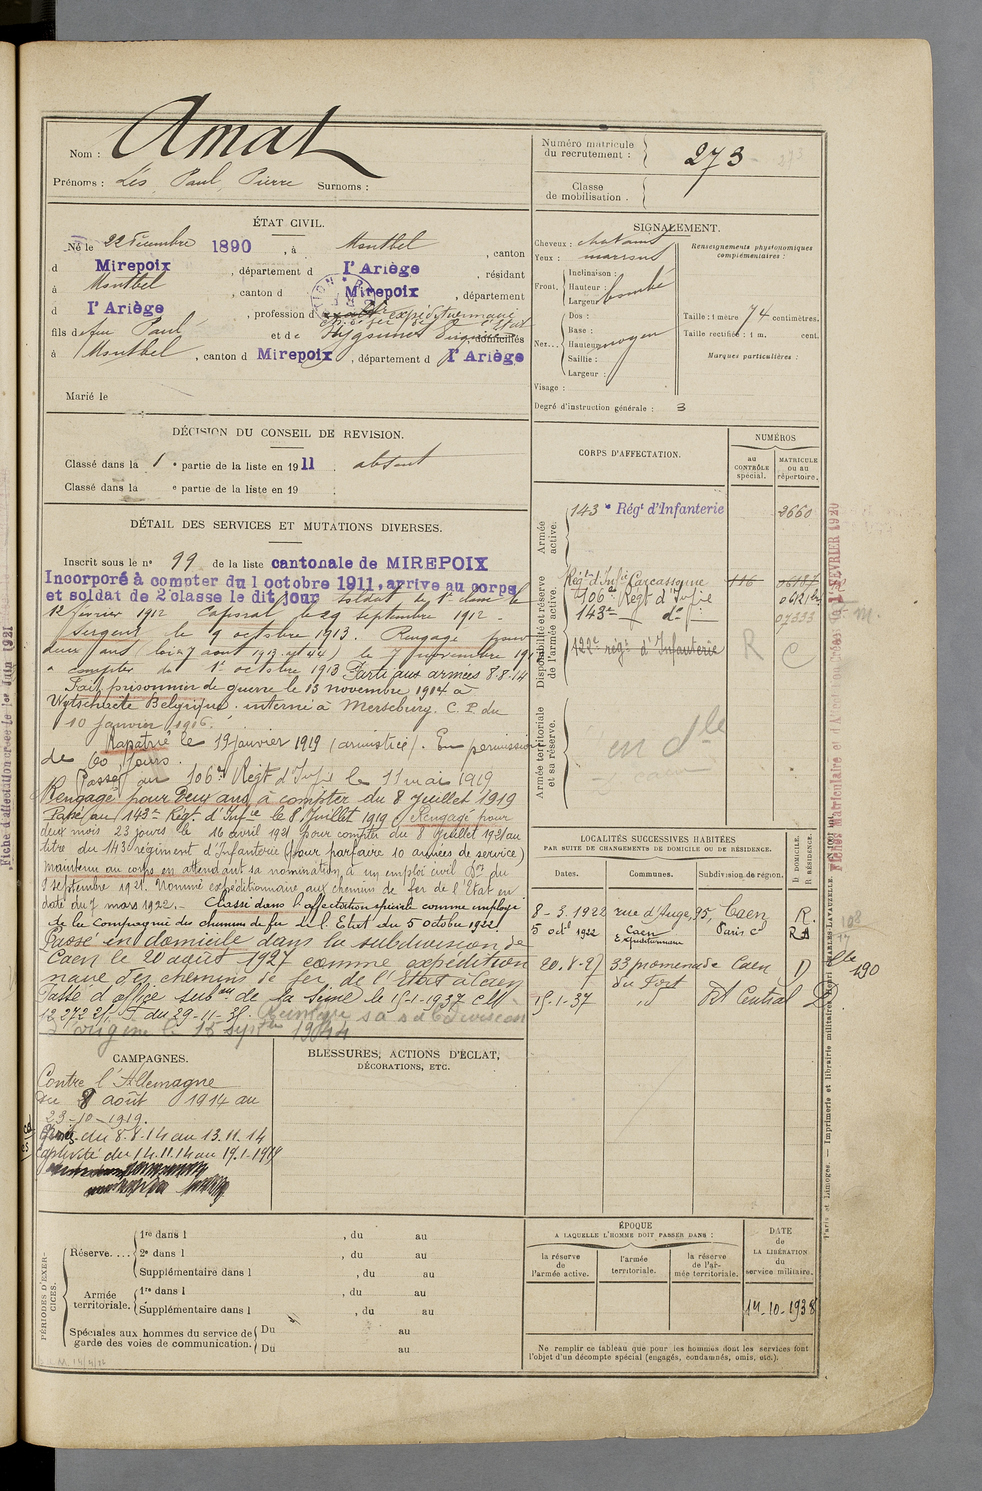 Nom : Amat
Prénoms : Paul Pierre Surnoms :
Numéro matricule du recrutement : 273
Classe de mobilisation .
ÉTAT CIVIL.
Né le 22 Décembre 1890, à Montbel, canton
d Mirepoix, département d l'Ariège, résidant
à Montbel, canton d Mirepoix, département
d l'Ariège, profession d
fils de feu Paul et de domiciliés
à Montbel, canton d Mirepoix, département d l'Ariège
Marié le
SIGNALEMENT.
Cheveux : chatains
Yeux : marrons
Front. Inclinaison :
Hauteur :
Largeur bombé
Nez... Dos :
Base :
Hauteur moyen
Saillie :
Largeur :
Visage :
Degré d'instruction générale : 3
Renseignements physionomiques complémentaires :
Taille : 1 mètre 74 centimètres.
Taille rectifiée : 1 m. cent.
Marques particulières :
DÉCISION DU CONSEIL DE REVISION.
Classé dans la 1e partie de la liste en 1911. absent
Classé dans la e partie de la liste en 19 .
DÉTAIL DES SERVICES ET MUTATIONS DIVERSES.
Inscrit sous le n° 99 de la liste cantonale de MIREPOIX
Incorporé à compter du 1 octobre 1911, arrive au corps
et soldat de 2e classe le dit jour soldat de 1e classe le
12 février 1912 Caporal le 29 septembre 1912 -
Sergent le 9 octobre 1913. Rengagé pour
deux ans (loi 7 août 1913 art 44) le 7 novembre 191
à compter du 1er octobre 1913 Parti aux armées 8.8.14
Fait prisonnier de guerre le 13 novembre 1914 à
Wytschaete Belgique. interné à Merseburg. C. P. du
10 janvier 1916.
Rapatrié le 19 janvier 1919 (armistice). En permission
de 60 jours.
Passé au 106e Régt d'Infie le 11 mai 1919
Rengagé pour Deux ans à compter du 8 Juillet 1919
Passé au 143e Régt d'Infie le 8 Juillet 1919 Rengagé pour
deux mois 23 jours le 16 avril 1921 pour compter du 8 Juillet 1921 au
titre du 143e régiment d'Infanterie (pour parfaire 10 années de service)
Maintenu au corps en attendant sa nomination à un emploi civil du
1 septembre 1921. Nommé expéditionnaire aux chemins de fer de l'Etat en
date du 7 mars 1922. - Classé dans l'affectation spéciale comme employé
de la Compagnie des chemins de fer de l'Etat du 5 octobre 1922.
Passé en domicile dans la subdivision de
Caen le 20 août 1927 comme expédition
naire des chemins de fer de l'Etat à Caen
Passé d'office subon de la Seine le 15-1-1937 CM
du 29-11-35. sa subdivision
d'origine le 15 Septbre 1944
CORPS D'AFFECTATION.
NUMÉROS
au CONTRÔLE spécial.
MATRICULE ou au répertoire.
Armée active.
143e Régt d'Infanterie 2660
Disponibilité et réserve de l'armée active.
Régt d'Infie Carcassonne 116
106e Régt d'Infie
143e do 07333
122e régt d'Infanterie R C
Armée territoriale et sa réserve.
en dle
LOCALITÉS SUCCESSIVES HABITÉES
PAR SUITE DE CHANGEMENTS DE DOMICILE OU DE RÉSIDENCE.
Dates. Communes. Subdivision de région. D. DOMICILE. R. RÉSIDENCE.
8-3.1922 rue d'Auge, 95, Caen R.
5 oct 1922 Caen Expéditionnaire Paris
20.8.27 33 promenade du Fort Caen D
15.1-37 " Central D
190
CAMPAGNES.
Contre l'Allemagne
du 8 août 1914 au
23-10-1919.
du 8-8-14 au 13.11.14
Captivité du 14.11.14 au 19.1.1919
BLESSURES, ACTIONS D'ÉCLAT, DÉCORATIONS, ETC.
PÉRIODES D'EXERCICES.
Réserve.... 1re dans l , du au
2e dans l , du au
Supplémentaire dans l , du au
Armée territoriale. 1re dans l , du au
Supplémentaire dans l , du au
Spéciales aux hommes du service de garde des voies de communication. Du au
Du au
ÉPOQUE
A LAQUELLE L'HOMME DOIT PASSER DANS :
la réserve de l'armée active.
l'armée territoriale.
la réserve de l'armée territoriale.
DATE de LA LIBÉRATION du service militaire.
14-10-1938
Ne remplir ce tableau que pour les hommes dont les services font
l'objet d'un décompte spécial (engagés, condamnés, omis, etc.).
Paris et Limoges. — Imprimerie et librairie militaires Henri CHARLES-LAVAUZELLE.
Fiche d'affectation créée le 1er Juin 1921